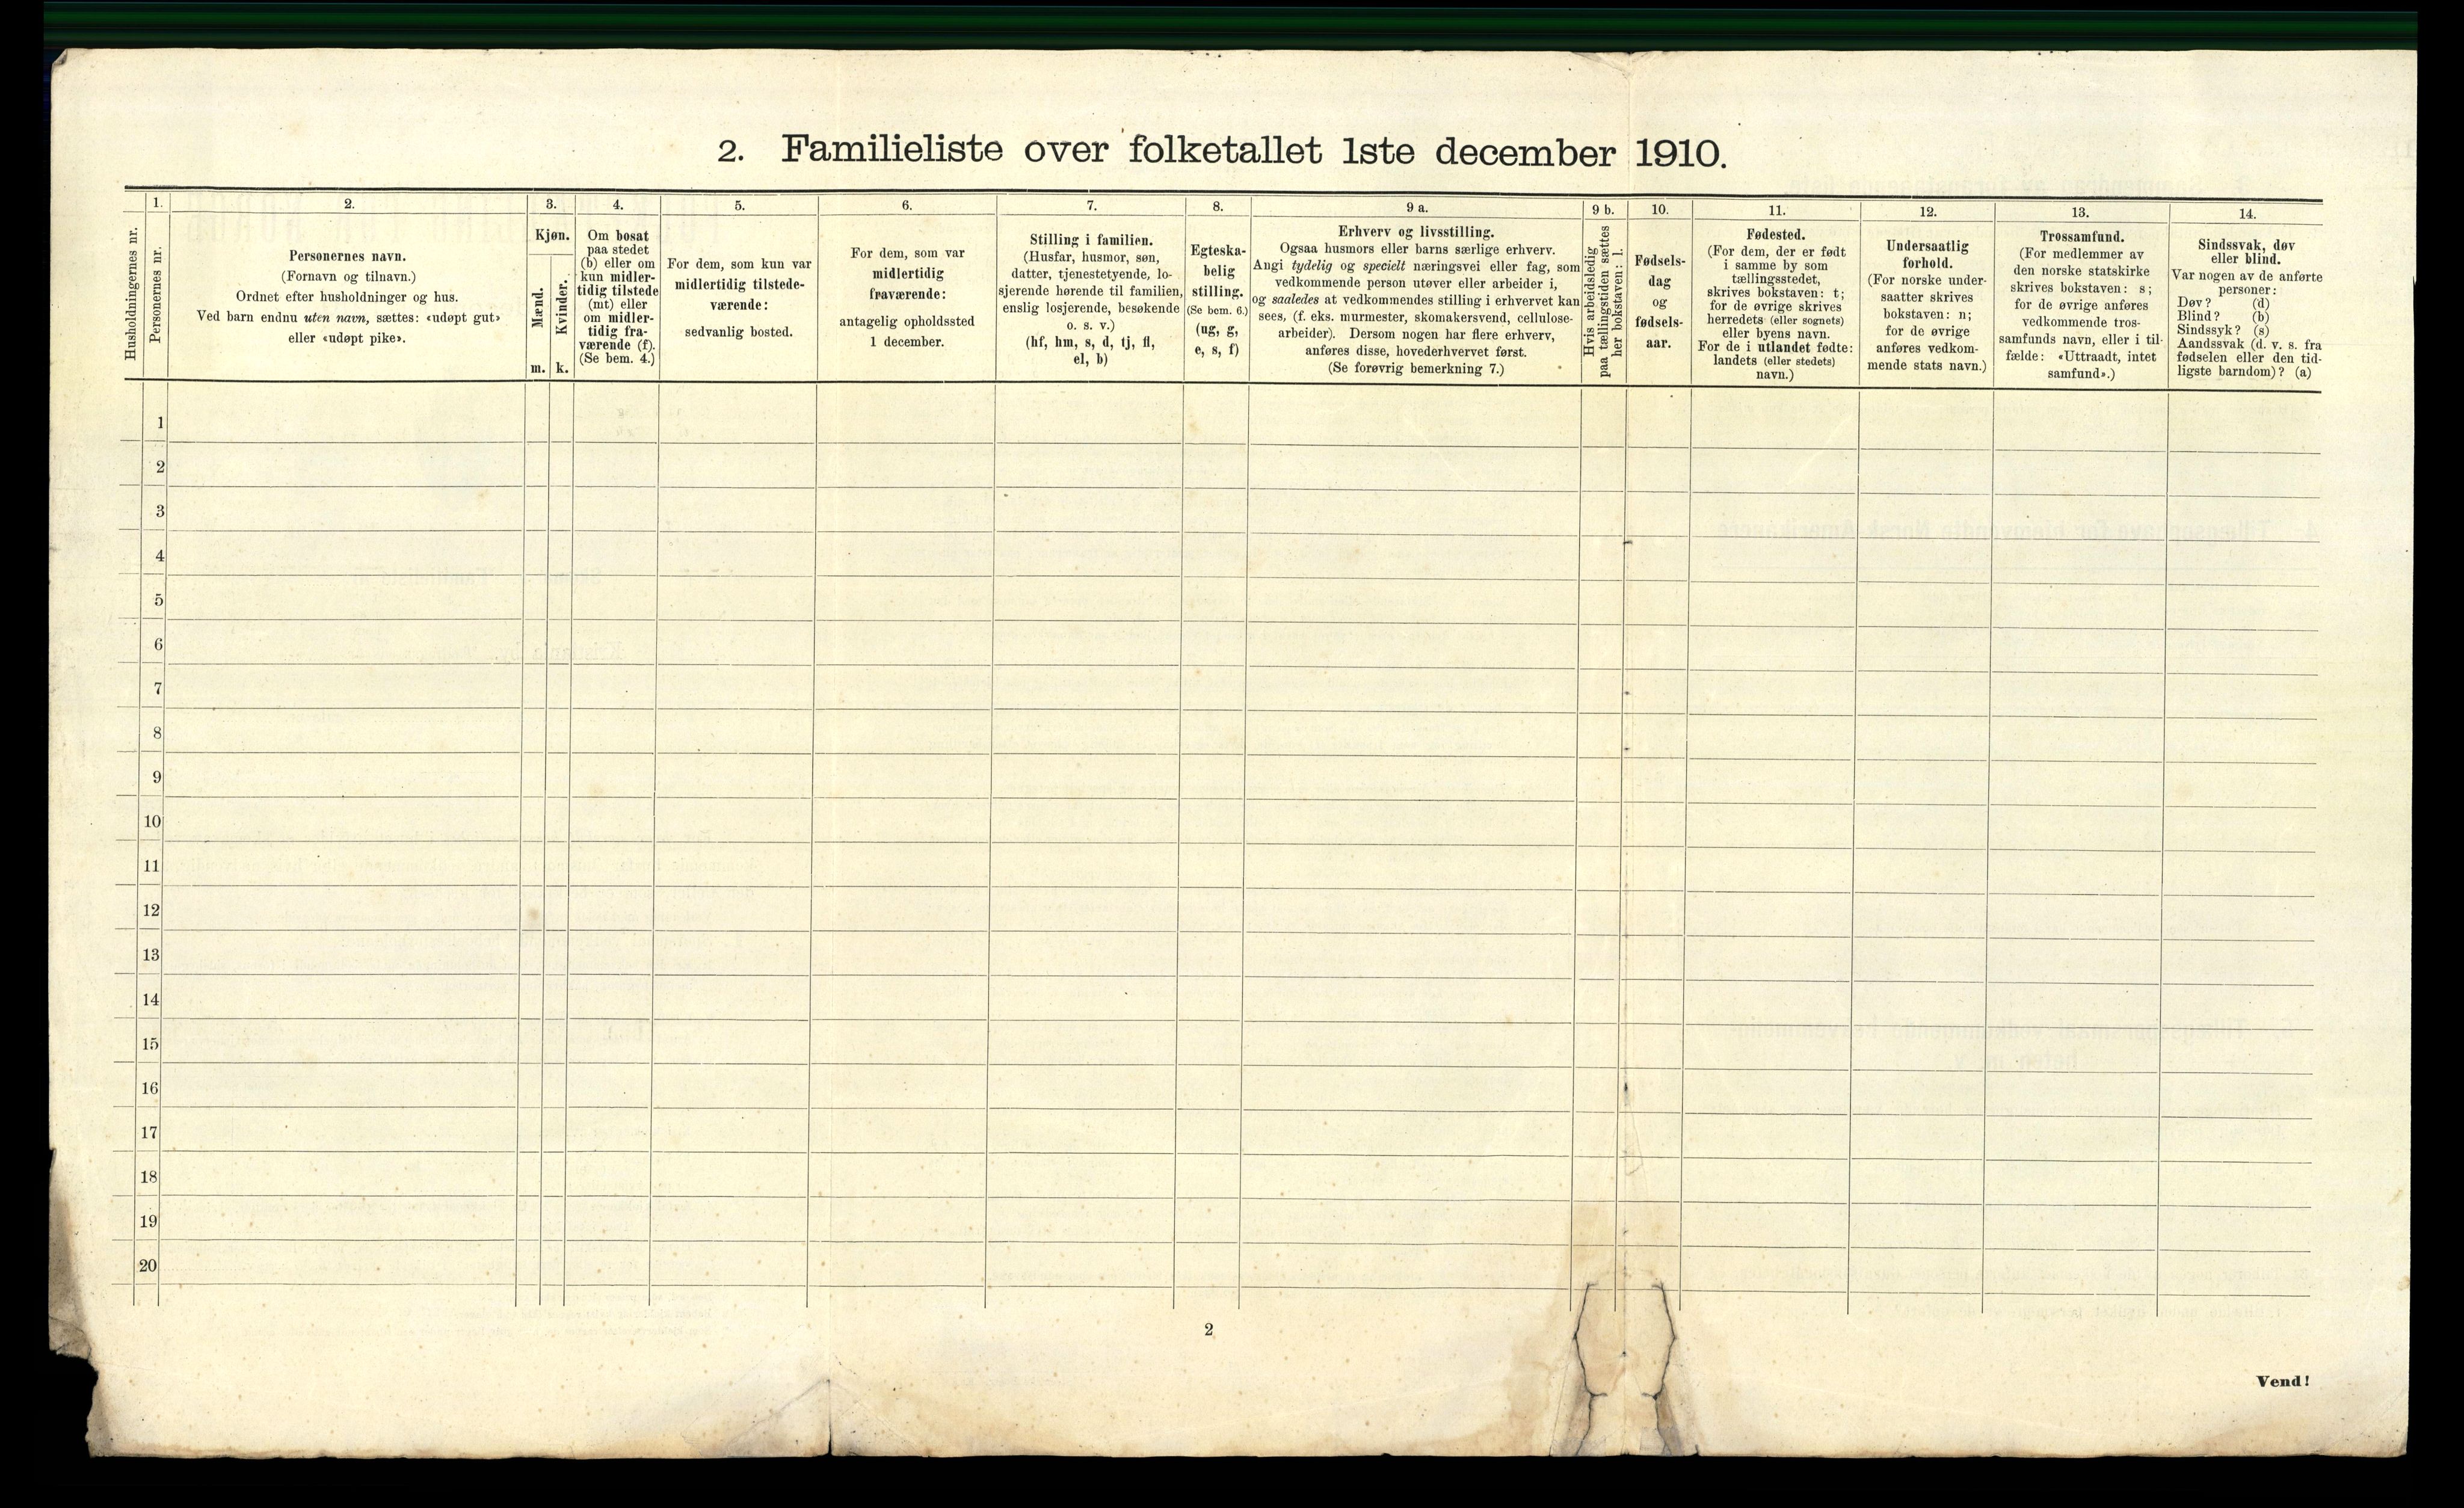 2. Familieliste over folketallet 1ste december 1910.
Husholdningernes nr.
1.
Personernes nr.
2.
Personernes navn.
(Fornavn og tilnavn.)
Ordnet efter husholdninger og hus.
Ved barn endnu uten navn, sættes: «udøpt gut»
eller «udøpt pike».
3.
Kjøn.
Mænd.
Kvinder.
m.
k.
4.
Om bosat
paa stedet
(b) eller om
kun midler-
tidig tilstede
(mt) eller
om midler-
tidig fra-
værende (f).
(Se bem. 4.)
5.
For dem, som kun var
midlertidig tilstede-
værende:
sedvanlig bosted.
6.
For dem, som var
midlertidig
fraværende:
antagelig opholdssted
1 december.
7.
Stilling i familien.
(Husfar, husmor, søn,
datter, tjenestetyende, lo-
sjerende hørende til familien,
enslig losjerende, besøkende
o. s. v.)
(hf, hm, s, d, tj, fl,
el, b)
8.
Egteska-
belig
stilling.
(Se bem. 6.)
(ug, g,
e, s, f)
9 a.
Erhverv og livsstilling.
Ogsaa husmors eller barns særlige erhverv.
Angi tydelig og specielt næringsvei eller fag, som
vedkommende person utøver eller arbeider i,
og saaledes at vedkommendes stilling i erhvervet kan
sees, (f. eks. murmester, skomakersvend, cellulose-
arbeider). Dersom nogen har flere erhverv,
anføres disse, hovederhvervet først.
(Se forøvrig bemerkning 7.)
9 b.
Hvis arbeidsledig
paa tællingstiden sættes
her bokstaven: l.
10.
Fødsels-
dag
og
fødsels-
aar.
11.
Fødested.
(For dem, der er født
i samme by som
tællingsstedet,
skrives bokstaven: t;
for de øvrige skrives
herredets (eller sognets)
eller byens navn.
For de i utlandet fødte:
landets (eller stedets)
navn.)
12.
Undersaatlig
forhold.
(For norske under-
saatter skrives
bokstaven: n;
for de øvrige
anføres vedkom-
mende stats navn.)
13.
Trossamfund.
(For medlemmer av
den norske statskirke
skrives bokstaven: s;
for de øvrige anføres
vedkommende tros-
samfunds navn, eller i til-
fælde: «Uttraadt, intet
samfund».)
14.
Sindssvak, døv
eller blind.
Var nogen av de anførte
personer:
Døv? (d)
Blind? (b)
Sindssyk? (s)
Aandssvak (d. v. s. fra
fødselen eller den tid-
ligste barndom)? (a)
1
2
3
4
5
6
7
8
9
10
11
12
13
14
15
16
17
18
19
20
2
Vend!